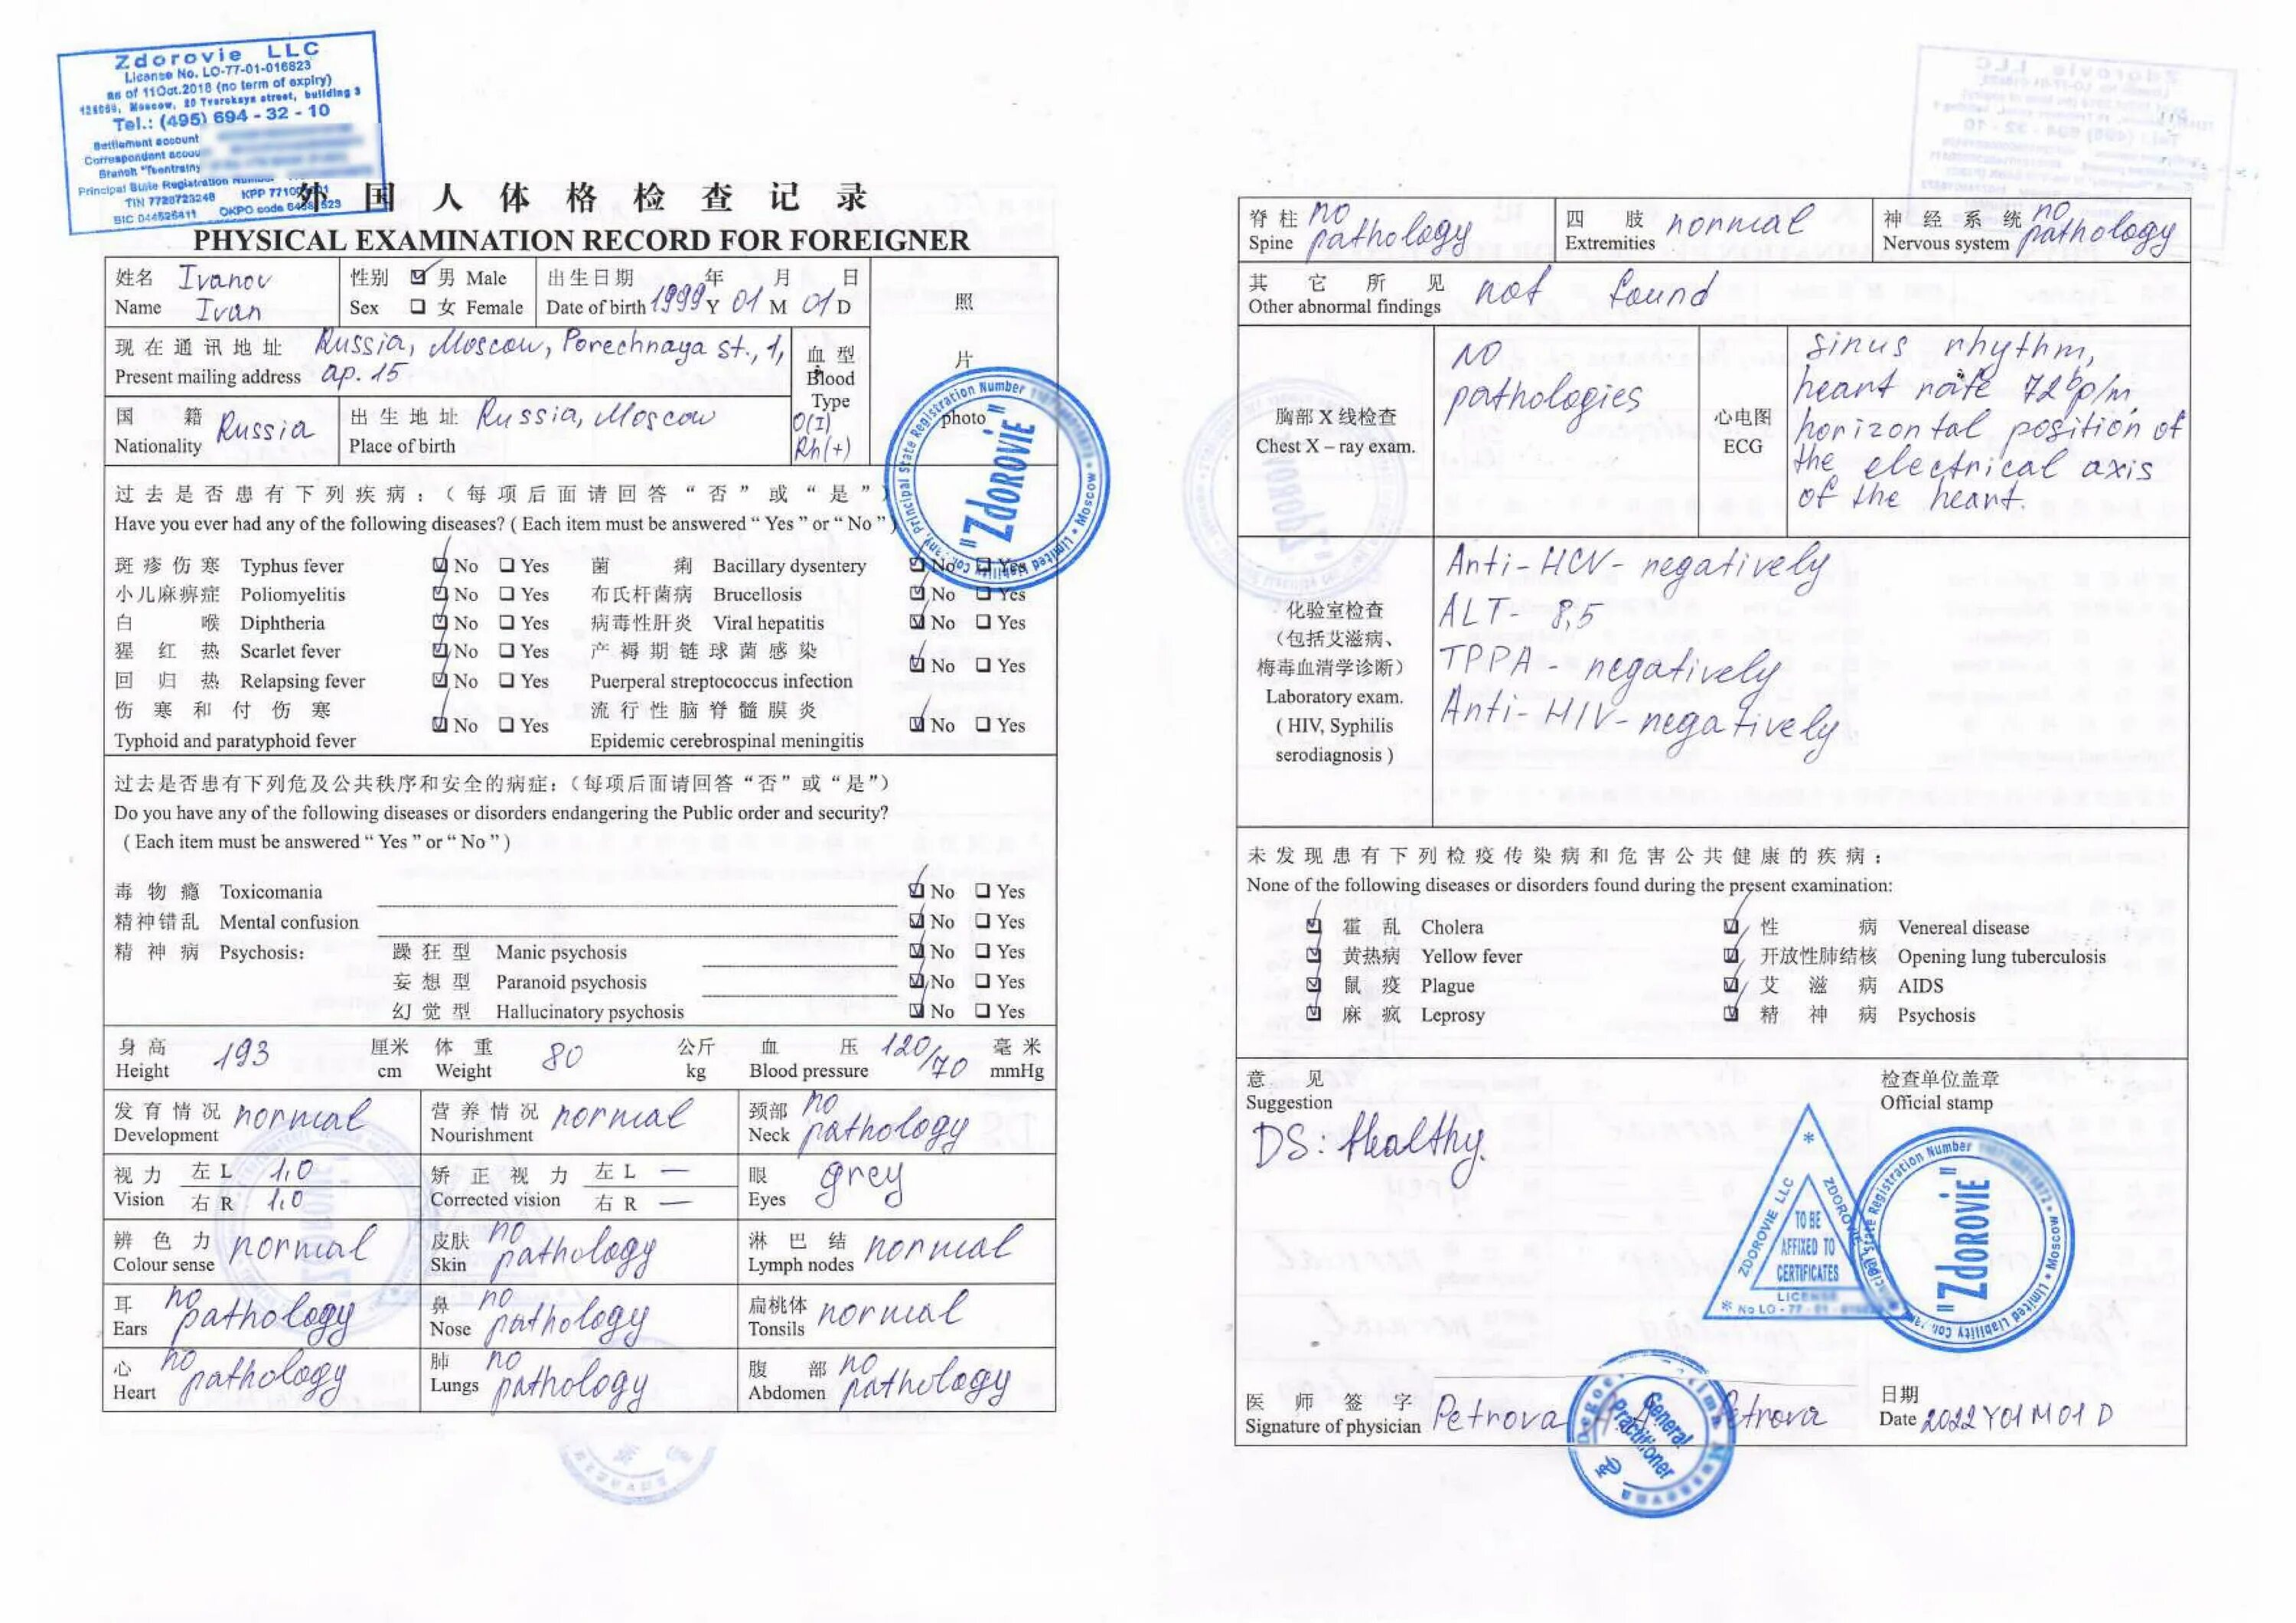 Zdorovie LLC
License No. LO-77-01-016823
as of 11Oct.2018 (no term of expiry)
Moscow, 20 Tverskaya street, building 3
Tel.: (495) 694 - 32 - 10
Settlement account
Correspondent
Branch
Principal State Registration
TIN 7728723248 KPP
BIC 044525411 OKPO code
外国人体格检查记录
PHYSICAL EXAMINATION RECORD FOR FOREIGNER
姓名 Ivanov 性别 男 Male 出生日期 年 月 日 照
Name Ivan Sex 女 Female Date of birth 1999 Y 01 M 01 D
现在通讯地址 Russia, Moscow, Porechnaya st., 1, 血型 片
Present mailing address ap. 15 Blood
Type
国籍 Russia 出生地址 Russia, Moscow O(I) photo
Nationality Place of birth Rh(+)
Principal State Registration Number
"Zdorovie"
Moscow • Limited Liability Company
过去是否患有下列疾病：（每项后面请回答“否”或“是”）
Have you ever had any of the following diseases? ( Each item must be answered “ Yes ” or “ No ” )
斑疹伤寒 Typhus fever No Yes 菌痢 Bacillary dysentery No Yes
小儿麻痹症 Poliomyelitis No Yes 布氏杆菌病 Brucellosis No Yes
白喉 Diphtheria No Yes 病毒性肝炎 Viral hepatitis No Yes
猩红热 Scarlet fever No Yes 产褥期链球菌感染 No Yes
回归热 Relapsing fever No Yes Puerperal streptococcus infection
伤寒和付伤寒 No Yes 流行性脑脊髓膜炎 No Yes
Typhoid and paratyphoid fever Epidemic cerebrospinal meningitis
过去是否患有下列危及公共秩序和安全的病症：（每项后面请回答“否”或“是”）
Do you have any of the following diseases or disorders endangering the Public order and security?
( Each item must be answered “ Yes ” or “ No ” )
毒物瘾 Toxicomania No Yes
精神错乱 Mental confusion No Yes
精神病 Psychosis: 躁狂型 Manic psychosis No Yes
妄想型 Paranoid psychosis No Yes
幻觉型 Hallucinatory psychosis No Yes
身高 193 厘米 体重 80 公斤 血压 120/70 毫米
Height cm Weight kg Blood pressure mmHg
发育情况 normal 营养情况 normal 颈部 no
Development Nourishment Neck pathology
视力 左 L 1,0 矫正视力 左 L — 眼 grey
Vision 右 R 1,0 Corrected vision 右 R — Eyes
辨色力 normal 皮肤 no 淋巴结 normal
Colour sense Skin pathology Lymph nodes
耳 no 鼻 no 扁桃体 normal
Ears pathology Nose pathology Tonsils
心 no 肺 no 腹部 no
Heart pathology Lungs pathology Abdomen pathology
脊柱 no 四肢 normal 神经系统 no
Spine pathology Extremities Nervous system pathology
其它所见 not found
Other abnormal findings
胸部 X 线检查
Chest X – ray exam.
NO
pathologies
心电图
ECG
sinus rhythm,
heart rate 72 bp/m,
horizontal position of
the electrical axis
of the heart.
化验室检查
（包括艾滋病、
梅毒血清学诊断）
Laboratory exam.
( HIV, Syphilis
serodiagnosis )
Anti-HCV- negatively
ALT- 8,5
TPPA - negatively
Anti-HIV-negatively
未发现患有下列检疫传染病和危害公共健康的疾病：
None of the following diseases or disorders found during the present examination:
霍乱 Cholera 性病 Venereal disease
黄热病 Yellow fever 开放性肺结核 Opening lung tuberculosis
鼠疫 Plague 艾滋病 AIDS
麻疯 Leprosy 精神病 Psychosis
意见 检查单位盖章
Suggestion Official stamp
DS: Healthy.
ZDOROVIE LLC
ZDOROVIE
TO BE
AFFIXED TO
CERTIFICATES
State Registration Number
"Zdorovie"
Moscow • Limited Liability
医师签字 Petrova Petrova 日期
Signature of physician Date 2022 Y 01 M 01 D
General
Practitioner